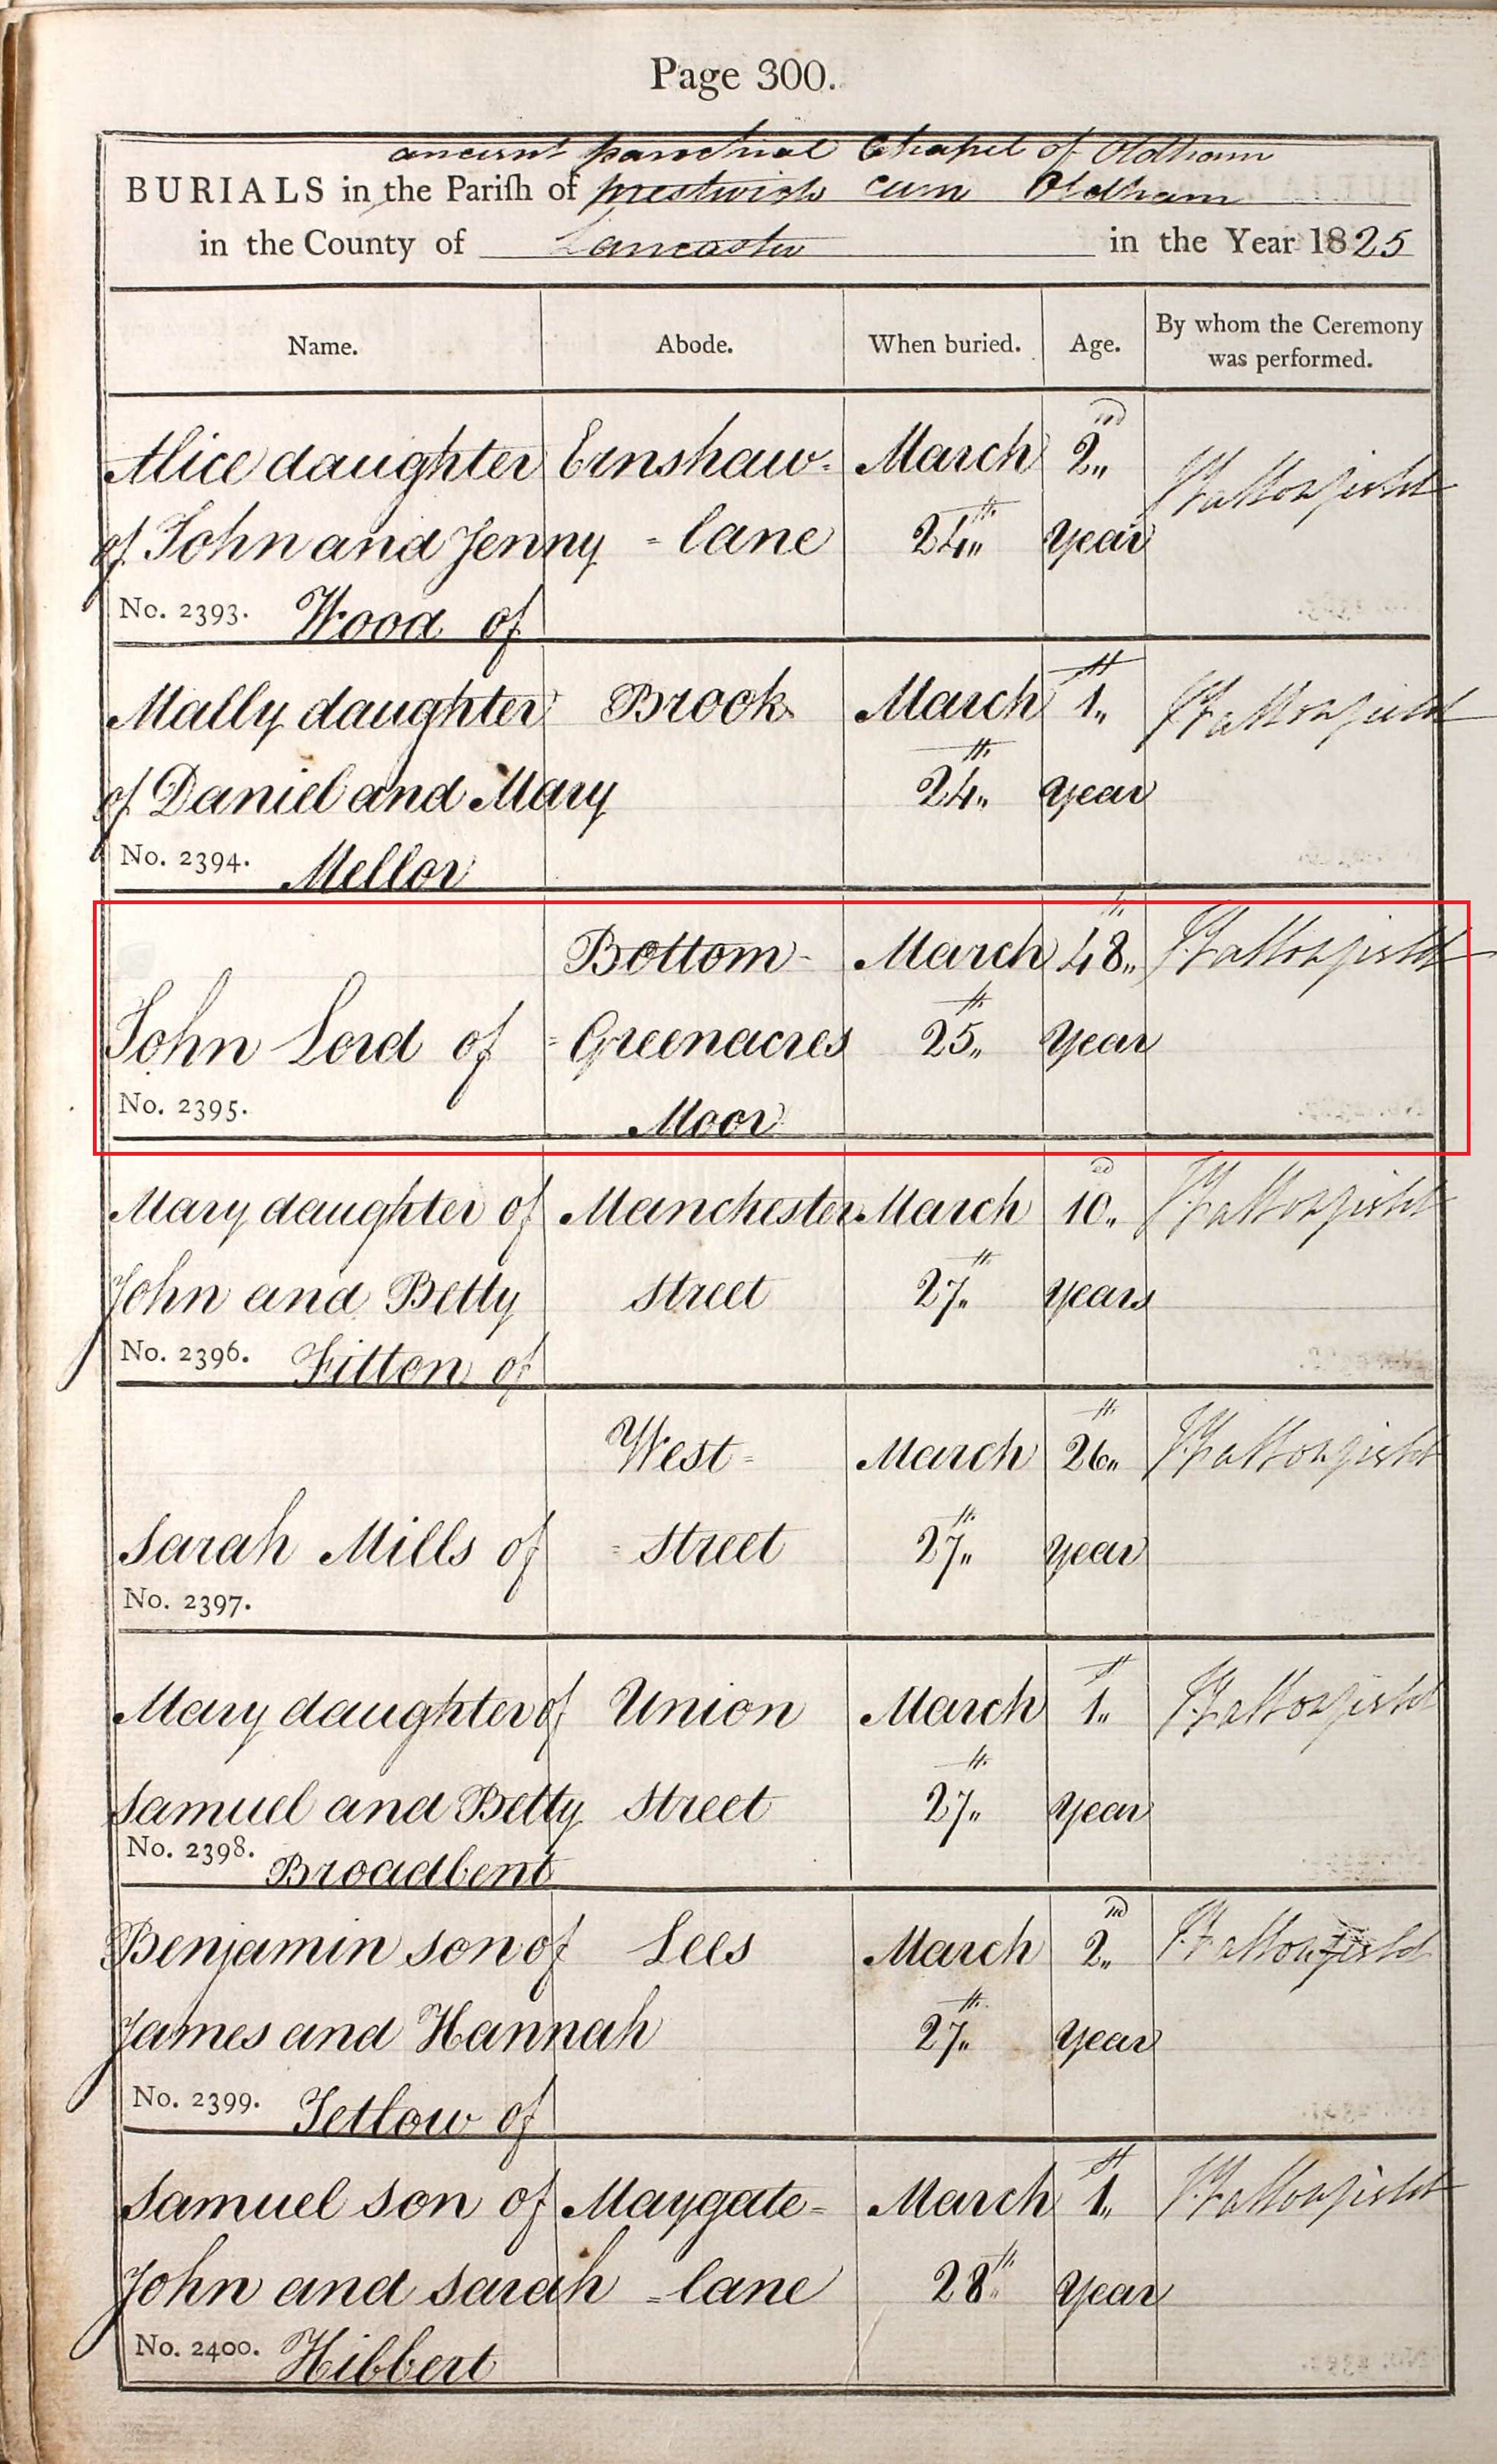 Page 300.
ancient parochial Chapel of Oldham
BURIALS in the Pariſh of prestwich cum Oldham
in the County of Lancaster in the Year 1825
Name. Abode. When buried. Age. By whom the Ceremony
was performed.
Alice daughter Ernshaw- March 2nd
of John and Jenny - lane 24th year
No. 2393. Wood of
Mally daughter Brook March 1st
of Daniel and Mary 24th year
No. 2394. Mellor
Bottom- March 48th
John Lord of - Greenacres 25th year
No. 2395. Moor
Mary daughter of Manchester March 10
John and Betty street 27th years
No. 2396. Fitton of
West- March 26th
Sarah Mills of - street 27th year
No. 2397.
Mary daughter of Union March 1st
Samuel and Betty street 27th year
No. 2398. Broadbent
Benjamin son of Lees March 2nd
James and Hannah 27th year
No. 2399. Tetlow of
Samuel son of Maygate- March 1st
John and Sarah - lane 28th year
No. 2400. Hibbert